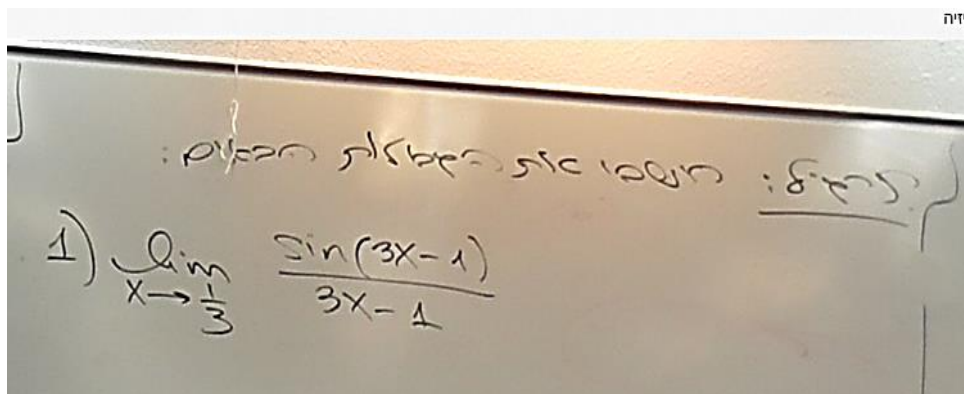 תרגיל: חשבו את הגבולות הבאים:
1) lim x→1/3 sin(3x-1)/3x-1